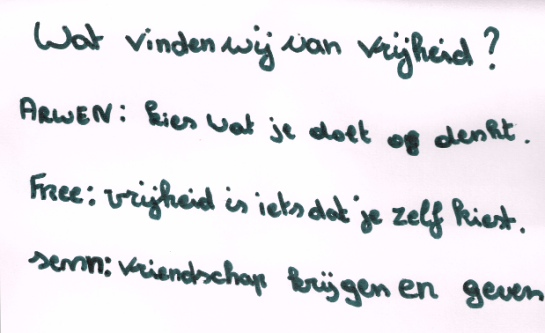 Wat vinden wij van vrijheid?
ARWEN: kies wat je doet of denkt.
Free: vrijheid is iets dat je zelf kiest.
senn: vriendschap krijgen en geven